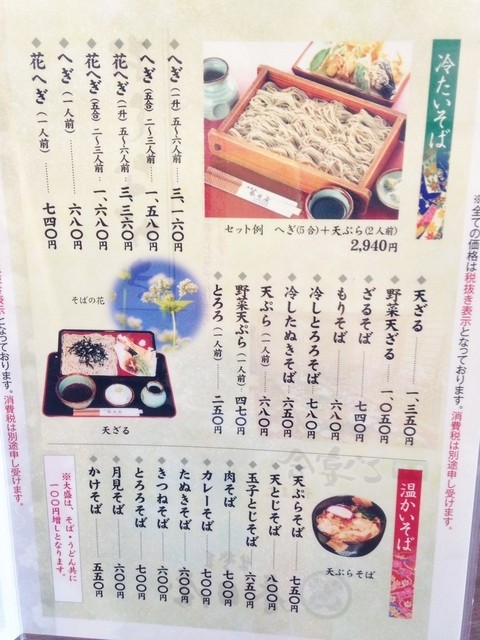 冷たいそば
セット例　へぎ(5合)＋天ぷら(2人前)
2,940円
◆へぎ(一升)五〜六人前……三、一六〇円
◆へぎ(五合)二〜三人前……一、五八〇円
◆花へぎ(一升)五〜六人前…三、三六〇円
◆花へぎ(五合)二〜三人前…一、六八〇円
◆へぎ(一人前)……六八〇円
◆花へぎ(一人前)……七四〇円
◆天ざる……一、三五〇円
◆野菜天ざる……一、〇五〇円
◆ざるそば……七四〇円
◆もりそば……六八〇円
◆冷しとろろそば……七八〇円
◆冷したぬきそば……六五〇円
◆天ぷら(一人前)……六八〇円
◆野菜天ぷら(一人前)…四七〇円
◆とろろ(一人前)……二五〇円
そばの花
天ざる
温かいそば
天ぷらそば
◆天ぷらそば……七五〇円
◆天とじそば……八〇〇円
◆玉子とじそば……六五〇円
◆肉そば……七〇〇円
◆カレーそば……七〇〇円
◆たぬきそば……六〇〇円
◆きつねそば……六〇〇円
◆とろろそば……七〇〇円
◆月見そば……六〇〇円
◆かけそば……五五〇円
※大盛は、そば・うどん共に
一〇〇円増しとなります。
※全ての価格は税抜き表示となっております。消費税は別途申し受けます。
表示となっております。消費税は別途申し受けます。